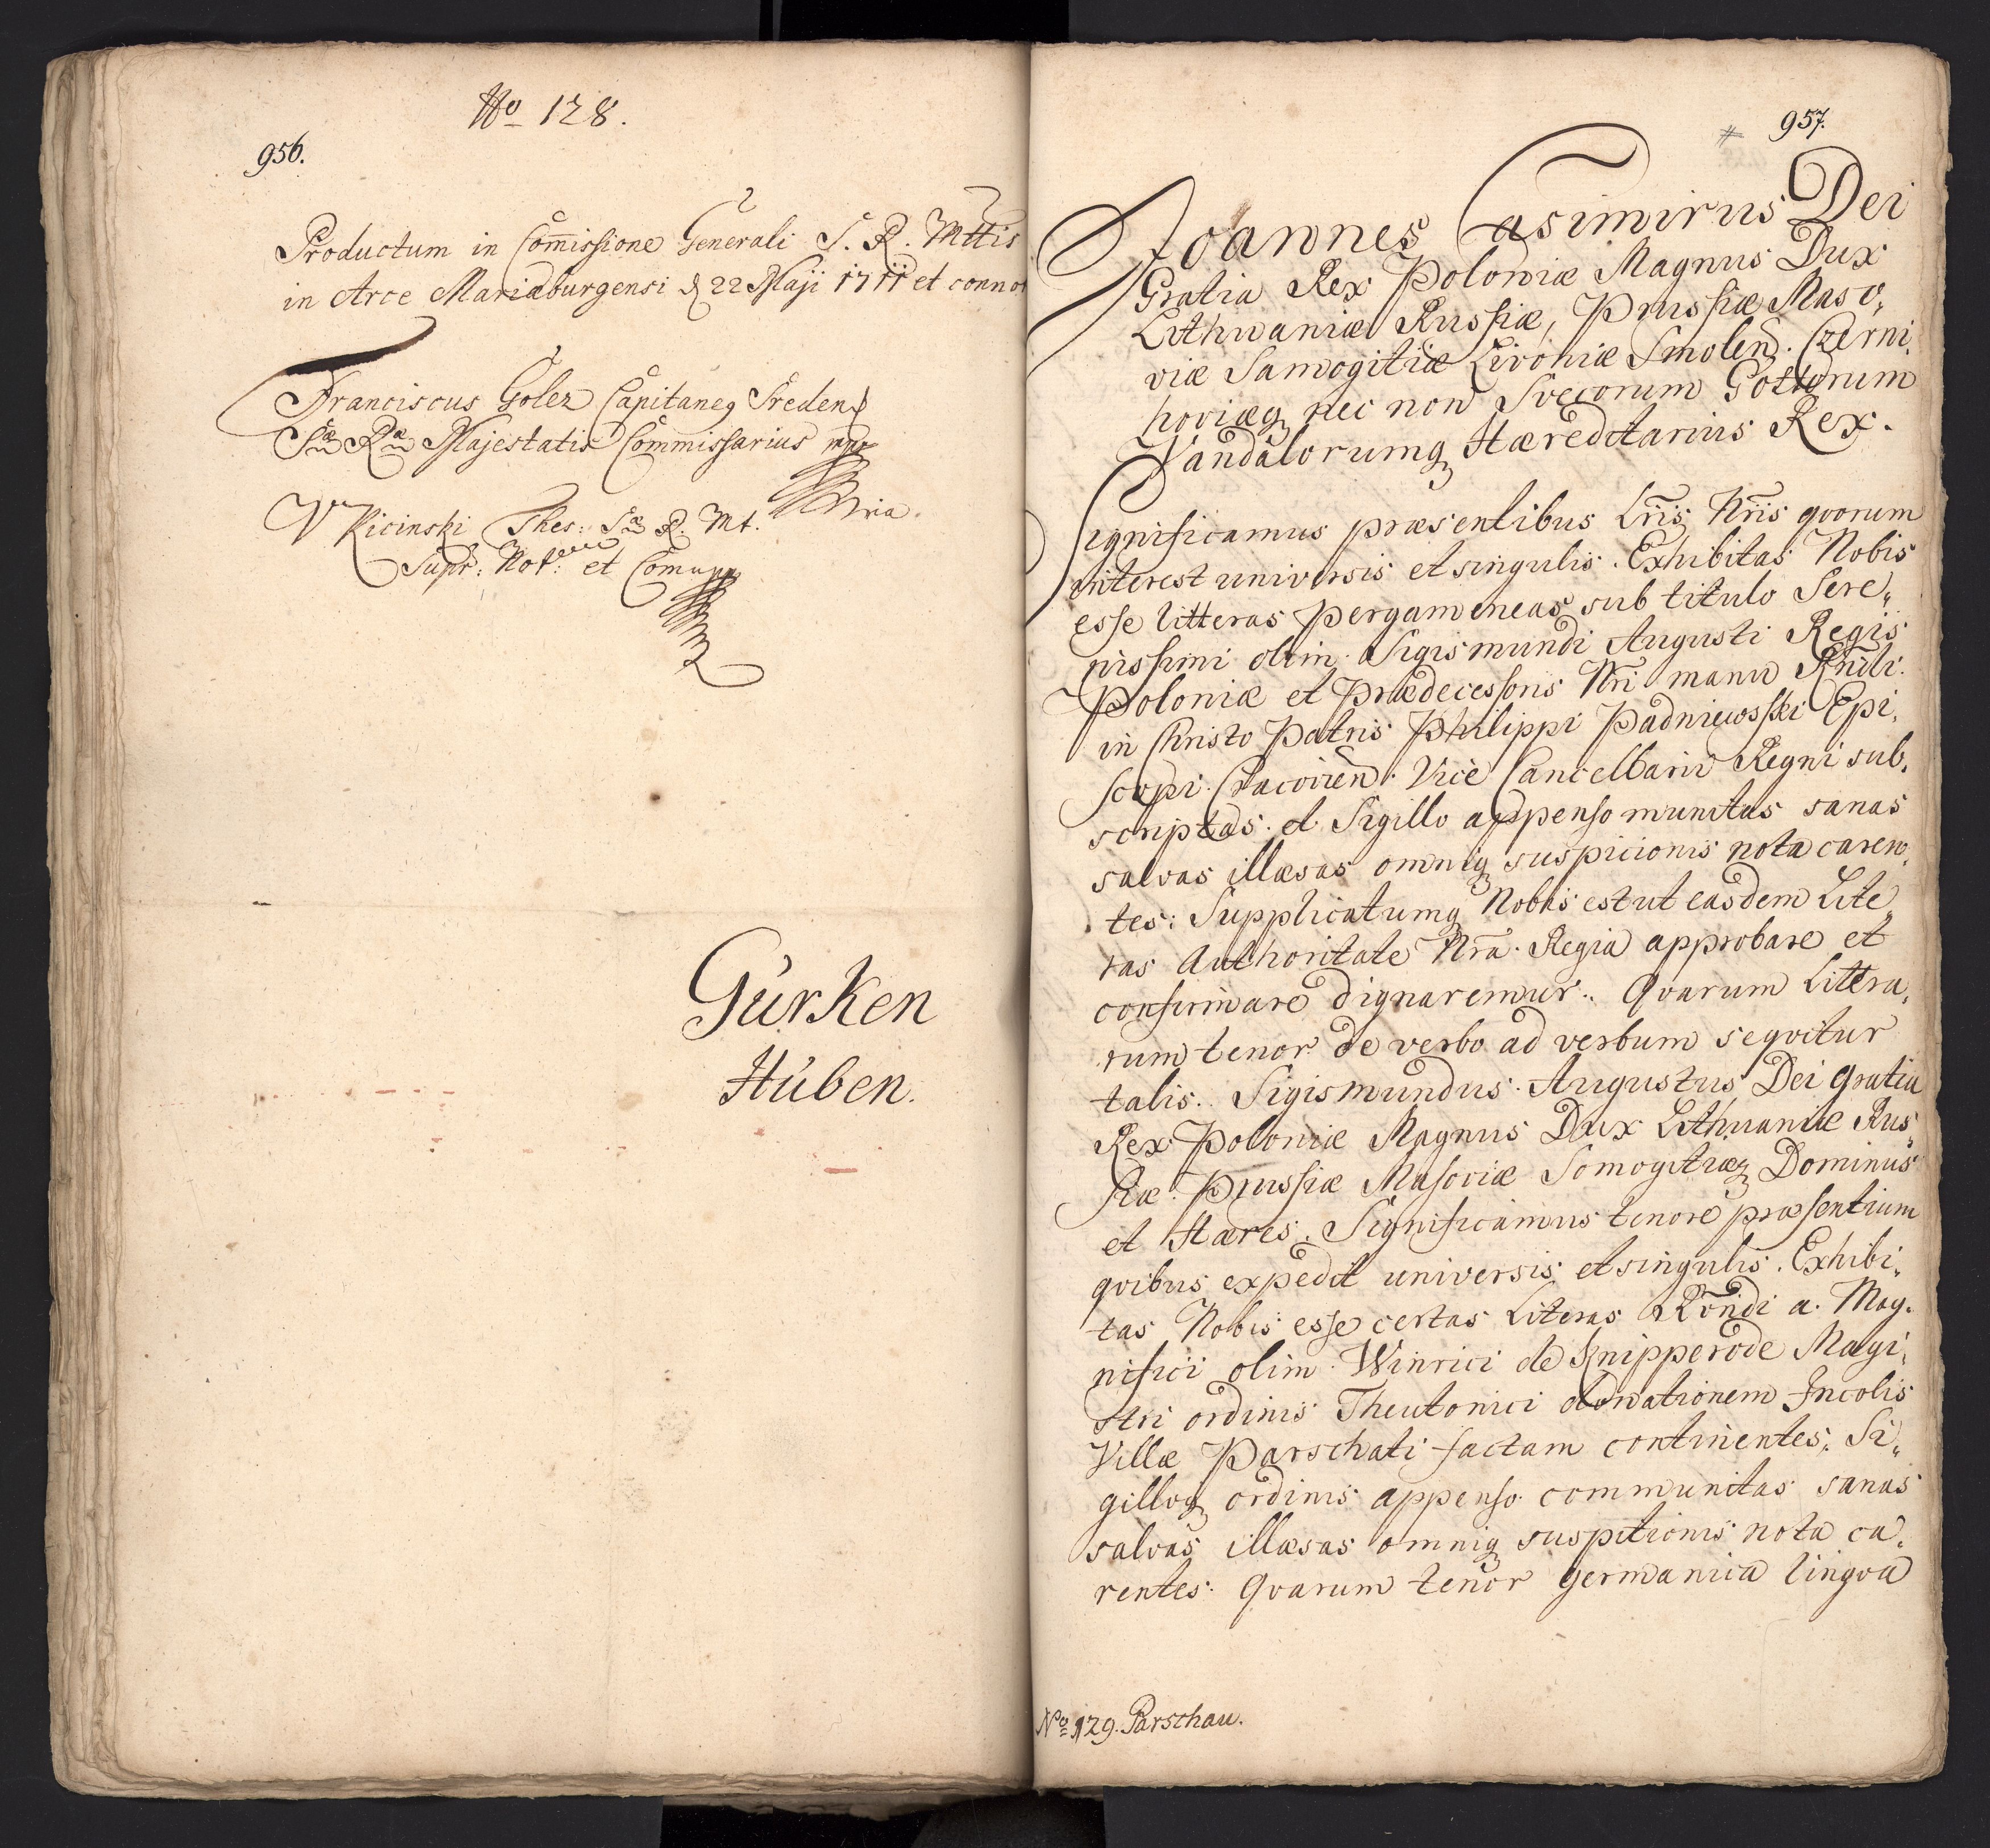 No 128.
956.
Productum in Com̄issione Generali S. R. Mttis
in Arce Mariæburgensi d 22 Maji 1711 et connot
Franciscus Golcz Capitaneq Sreden
Sæ Ræ Majestatis Commissarius mpp
mria.
V Kicinski Thes: Sæ R. Mt.
Supr: Not: et Com mpp
Gürken
Húben.
957.
Joannes Casimirus Dei
Gratia Rex Poloniæ Magnus Dux
Lithwaniæ Russiæ, Prussiæ Maso„
viæ Samogitiæ Livoniæ Smolen̄. Czerni„
hoviæq nec non Svecorum Gottorum
Vandalorumq Hæreditarius Rex.
Significamus præsentibus Lr̄is Nr̄is qvorum
interest universis et singulis. Exhibitas Nobis
esse litteras pergameneas sub titulo Sere„
nissimi olim Sigismundi Augusti Regis
Poloniæ et Prædecessoris Nr̄i manu Rndi
in Christo Patris Philippi Padniewsski Epi„
scopi Cracovien̄. Vice Cancellarii Regni sub„
scriptas et Sigillo appenso munitas sanas
salvas illæsas omniq suspicionis nota caren„
tes: Supplicatumq Nobis est ut easdem Lite„
ras Authoritate Nr̄a Regia approbare et
confirmare dignaremur. Qvarum Littera„
rum tenor de verbo ad verbum seqvitur
talis. Sigismundus Augustus Dei gratia
Rex Poloniæ Magnus Dux Lithuaniæ Rus„
siæ Prussiæ Masoviæ Somogitiæq Dominus
et Hæres. Significamus tenore præsentium
qvibus expedit universis et singulis. Exhibi„
tas Nobis esse certas Literas a Mag„
nifici olim Winrici de Knipperode Magi„
stri ordinis Theutonici donationem Incolis
Villæ Parschati factam continentes, Si„
gilloq ordinis appenso communitas sanas
salvas illæsas omniq suspitionis nota ca„
rentes: Qvarum tenor germanica lingva
No 129. Parschau.